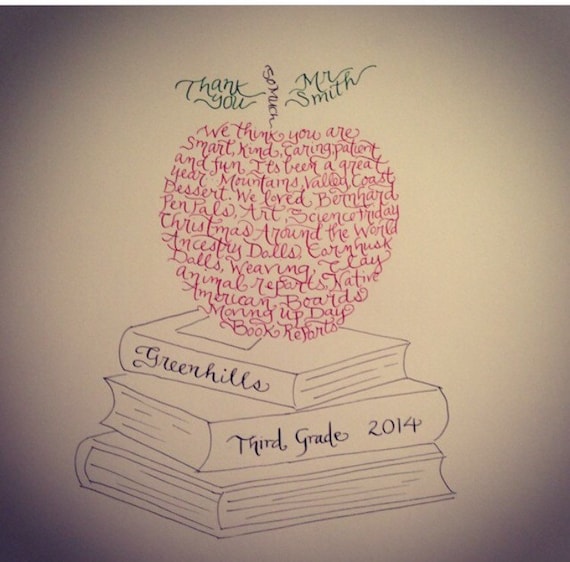 Thank
You
So Much
Mr
Smith
We think you are
Smart, Kind, Caring, patient
and fun. Its been a great
year. Mountains, Valley, Coast
Dessert. We loved Bernhard
Pen Pals, Art, Science Friday
Christmas Around the World
Ancestry Dolls, Cornhusk
Dolls, Weaving, Clay
animal reports, Native
American Boards
Moving up Day
Book Reports
Greenhills
Third Grade 2014